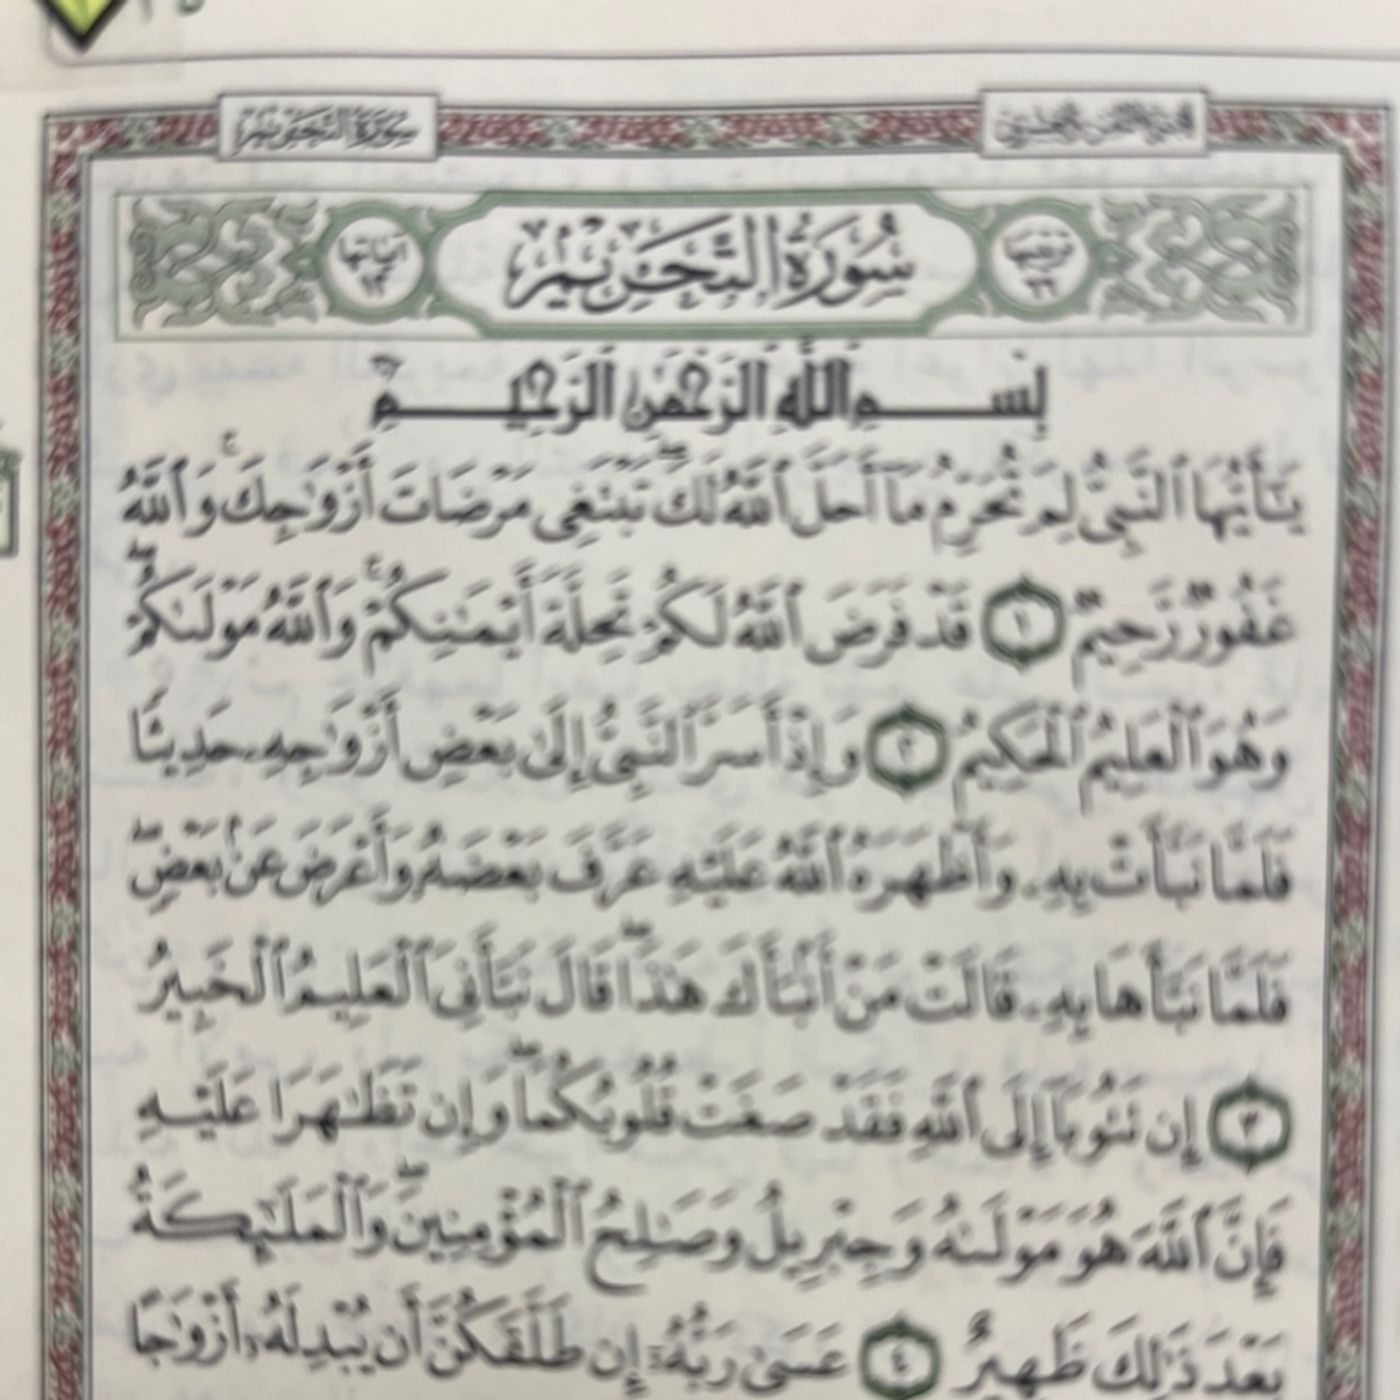 الجزء الثامن والعشرون
سورة التحريم
ترتيبها ٦٦
سُورَةُ التَّحْرِيمِ
آياتها ١٢
بِسْمِ اللَّهِ الرَّحْمَٰنِ الرَّحِيمِ
يَٰٓأَيُّهَا ٱلنَّبِىُّ لِمَ تُحَرِّمُ مَآ أَحَلَّ ٱللَّهُ لَكَ ۖ تَبْتَغِى مَرْضَاتَ أَزْوَٰجِكَ ۚ وَٱللَّهُ
غَفُورٌ رَّحِيمٌ ١ قَدْ فَرَضَ ٱللَّهُ لَكُمْ تَحِلَّةَ أَيْمَٰنِكُمْ ۚ وَٱللَّهُ مَوْلَىٰكُمْ ۖ
وَهُوَ ٱلْعَلِيمُ ٱلْحَكِيمُ ٢ وَإِذْ أَسَرَّ ٱلنَّبِىُّ إِلَىٰ بَعْضِ أَزْوَٰجِهِۦ حَدِيثًا
فَلَمَّا نَبَّأَتْ بِهِۦ وَأَظْهَرَهُ ٱللَّهُ عَلَيْهِ عَرَّفَ بَعْضَهُۥ وَأَعْرَضَ عَنۢ بَعْضٍ ۖ
فَلَمَّا نَبَّأَهَا بِهِۦ قَالَتْ مَنْ أَنۢبَأَكَ هَٰذَا ۖ قَالَ نَبَّأَنِىَ ٱلْعَلِيمُ ٱلْخَبِيرُ
٣ إِن تَتُوبَآ إِلَى ٱللَّهِ فَقَدْ صَغَتْ قُلُوبُكُمَا ۖ وَإِن تَظَٰهَرَا عَلَيْهِ
فَإِنَّ ٱللَّهَ هُوَ مَوْلَىٰهُ وَجِبْرِيلُ وَصَٰلِحُ ٱلْمُؤْمِنِينَ ۖ وَٱلْمَلَٰٓئِكَةُ
بَعْدَ ذَٰلِكَ ظَهِيرٌ ٤ عَسَىٰ رَبُّهُۥٓ إِن طَلَّقَكُنَّ أَن يُبْدِلَهُۥٓ أَزْوَٰجًا